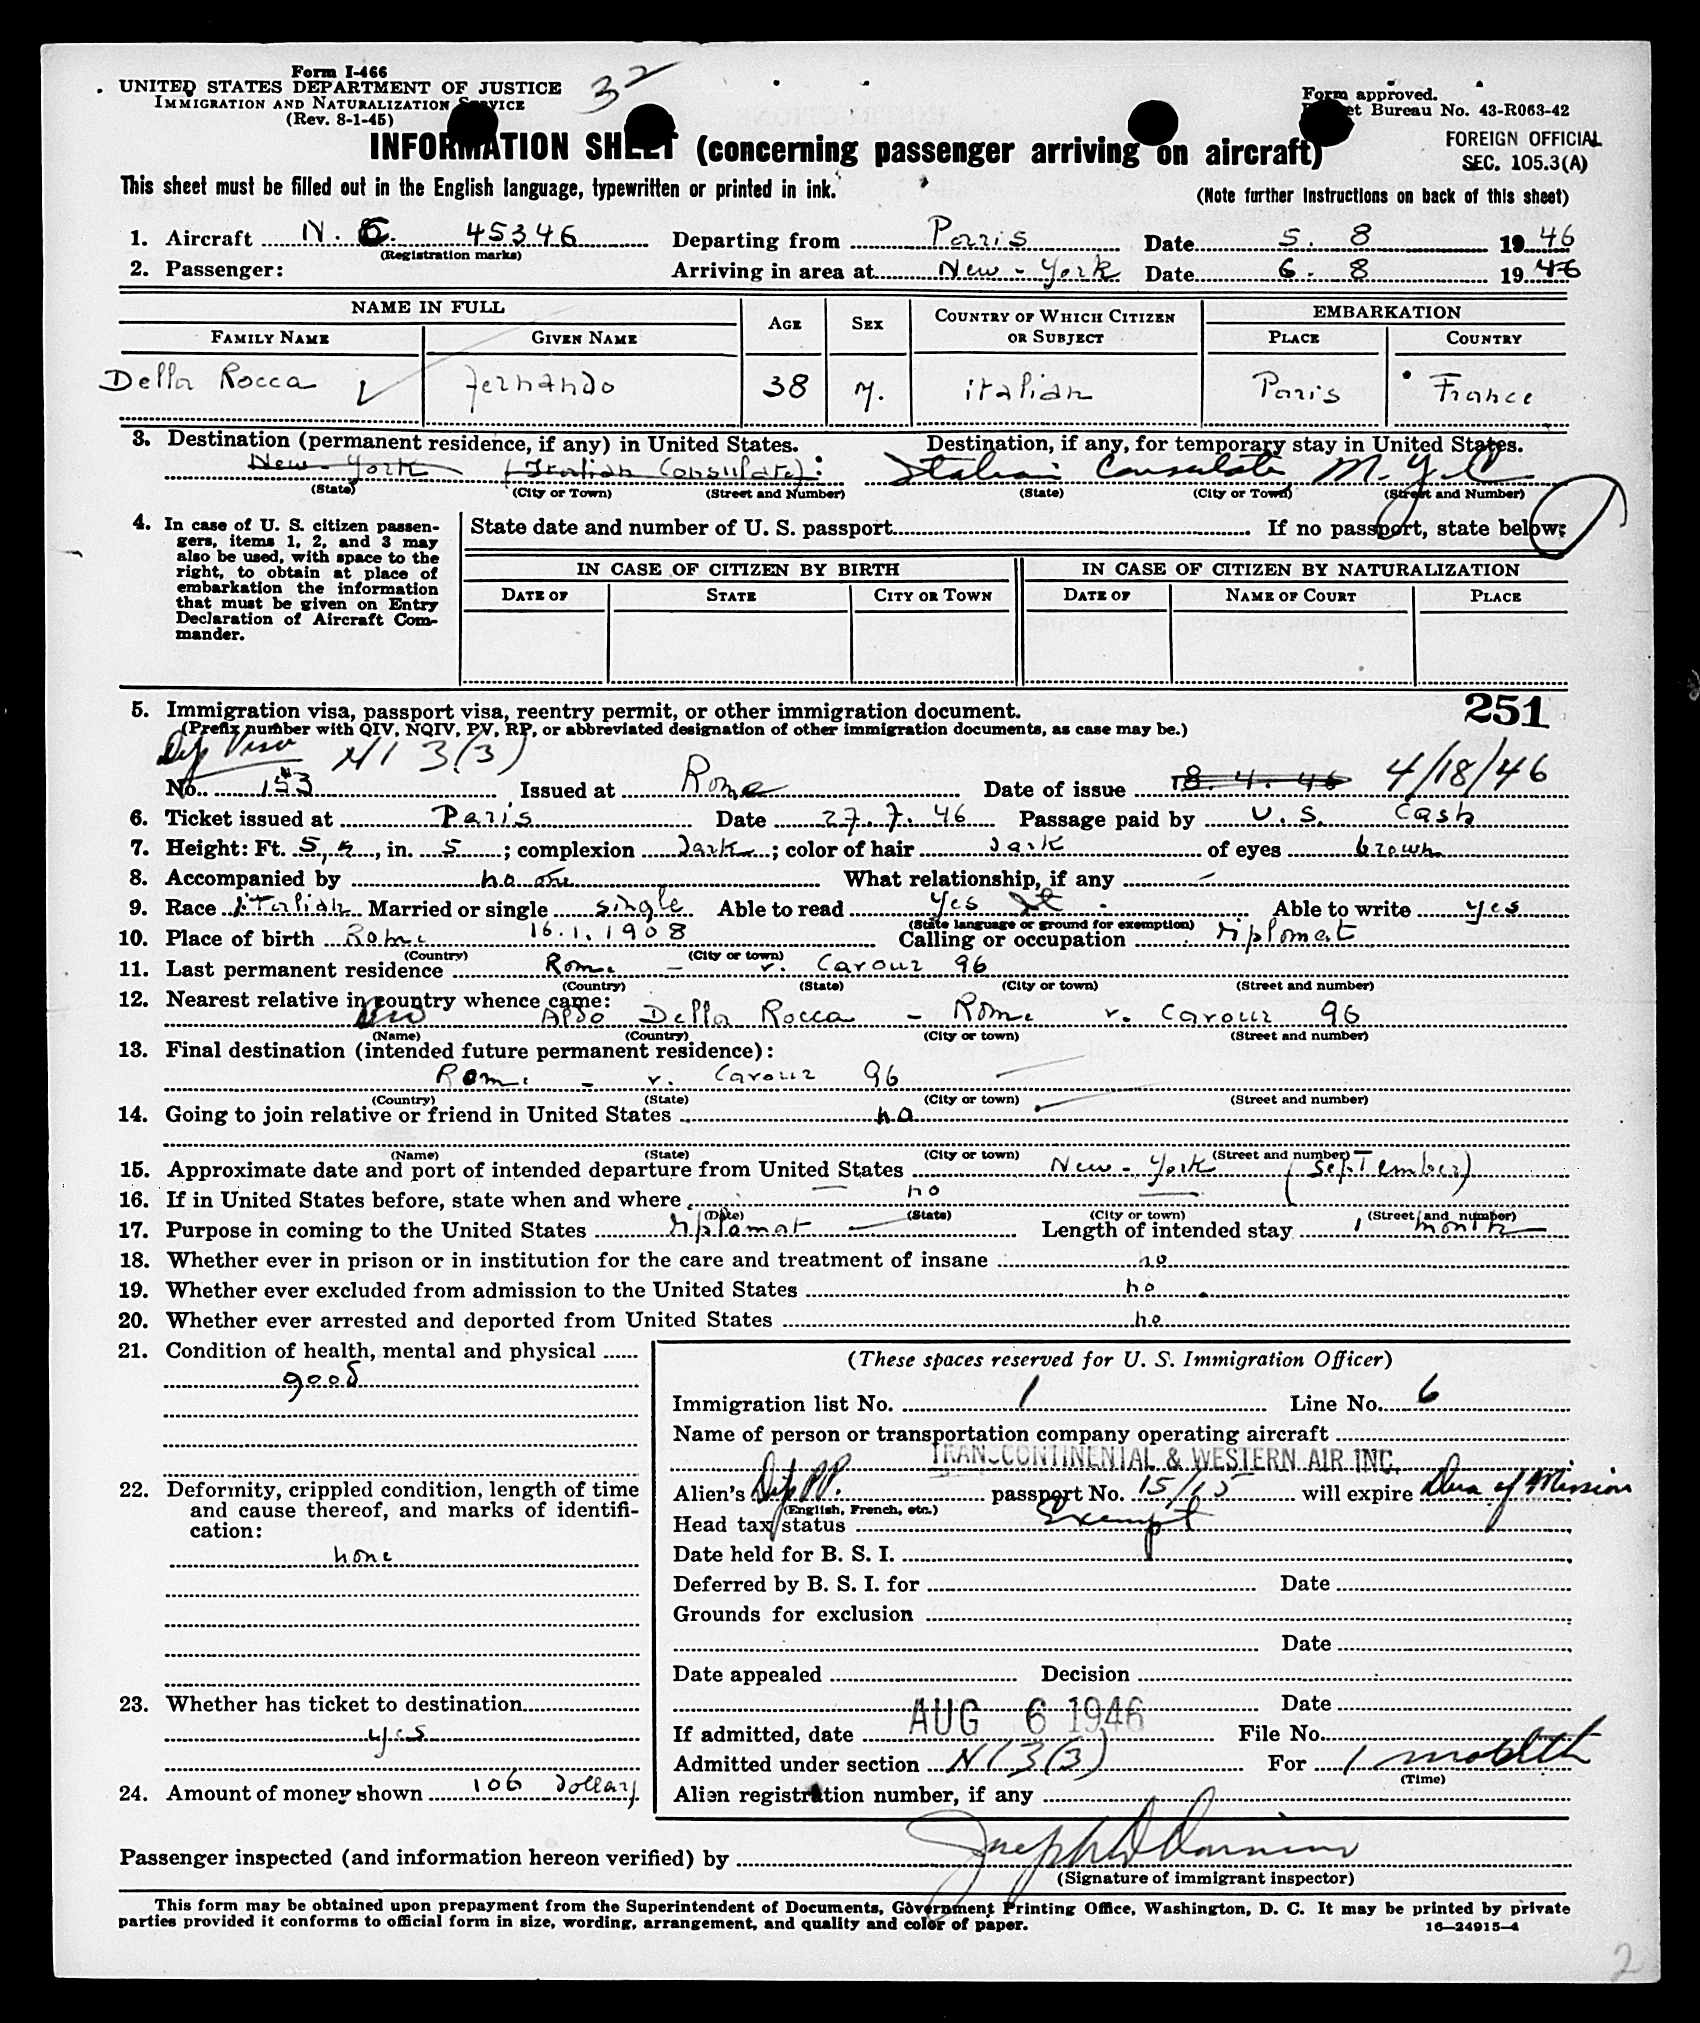 Form I-466
UNITED STATES DEPARTMENT OF JUSTICE
IMMIGRATION AND NATURALIZATION SERVICE
(Rev. 8-1-45)
32
Form approved.
Budget Bureau No. 43-R063-42
INFORMATION SHEET (concerning passenger arriving on aircraft)
FOREIGN OFFICIAL
SEC. 105.3(A)
This sheet must be filled out in the English language, typewritten or printed in ink.
(Note further instructions on back of this sheet)
1. Aircraft N. C. 45346 Departing from Paris Date 5. 8 1946
(Registration marks)
2. Passenger: Arriving in area at New-York Date 6. 8 1946
NAME IN FULL AGE SEX COUNTRY OF WHICH CITIZEN OR SUBJECT EMBARKATION
FAMILY NAME GIVEN NAME PLACE COUNTRY
Della Rocca fernando 38 M. italian Paris France
3. Destination (permanent residence, if any) in United States. Destination, if any, for temporary stay in United States.
New-York (Italian Consulate) Italian Consulate N.Y.C
(State) (City or Town) (Street and Number) (State) (City or Town) (Street and Number)
4. In case of U. S. citizen passengers, items 1, 2, and 3 may also be used, with space to the right, to obtain at place of embarkation the information that must be given on Entry Declaration of Aircraft Commander.
State date and number of U. S. passport If no passport, state below:
IN CASE OF CITIZEN BY BIRTH IN CASE OF CITIZEN BY NATURALIZATION
DATE OF STATE CITY OR TOWN DATE OF NAME OF COURT PLACE
251
5. Immigration visa, passport visa, reentry permit, or other immigration document.
(Prefix number with QIV, NQIV, PV, RP, or abbreviated designation of other immigration documents, as case may be.)
Dip Visa N1 3(3)
No. 153 Issued at Rome Date of issue 18. 4. 46 4/18/46
6. Ticket issued at Paris Date 27. 7. 46 Passage paid by U.S. Cash
7. Height: Ft. 5, in. 5; complexion dark; color of hair dark of eyes brown
8. Accompanied by no one What relationship, if any –
9. Race italian Married or single single Able to read yes It Able to write yes
(State language or ground for exemption)
10. Place of birth Rome 16.1.1908 Calling or occupation diplomat
(Country) (City or town)
11. Last permanent residence Rome – v. Cavour 96
(Country) (State) (City or town) (Street and number)
12. Nearest relative in country whence came:
Aldo Della Rocca – Rome v. Cavour 96
(Name) (Country) (City or town) (Street and number)
13. Final destination (intended future permanent residence):
Rome – v. Cavour 96
(Country) (State) (City or town) (Street and number)
14. Going to join relative or friend in United States no
(Name) (State) (City or town) (Street and number)
15. Approximate date and port of intended departure from United States New-York (september)
16. If in United States before, state when and where no
(Date) (State) (City or town) (Street and number)
17. Purpose in coming to the United States diplomat Length of intended stay 1 month
18. Whether ever in prison or in institution for the care and treatment of insane no
19. Whether ever excluded from admission to the United States no
20. Whether ever arrested and deported from United States no
21. Condition of health, mental and physical
good
22. Deformity, crippled condition, length of time and cause thereof, and marks of identification:
none
23. Whether has ticket to destination
yes
24. Amount of money shown 106 dollars
(These spaces reserved for U. S. Immigration Officer)
Immigration list No. 1 Line No. 6
Name of person or transportation company operating aircraft
TRANSCONTINENTAL & WESTERN AIR INC.
Alien's Dip PP. passport No. 15/15 will expire Dura of Mission
(English, French, etc.)
Head tax status Exempt
Date held for B. S. I.
Deferred by B. S. I. for Date
Grounds for exclusion
Date
Date appealed Decision
Date
If admitted, date AUG 6 1946 File No.
Admitted under section N1 3(3) For 1 month
(Time)
Alien registration number, if any
Passenger inspected (and information hereon verified) by
(Signature of immigrant inspector)
This form may be obtained upon prepayment from the Superintendent of Documents, Government Printing Office, Washington, D. C. It may be printed by private
parties provided it conforms to official form in size, wording, arrangement, and quality and color of paper.
16—24915-4
2